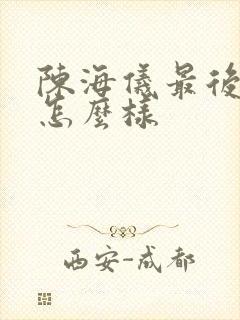 陳海儀最後
怎麼樣
西安-成都